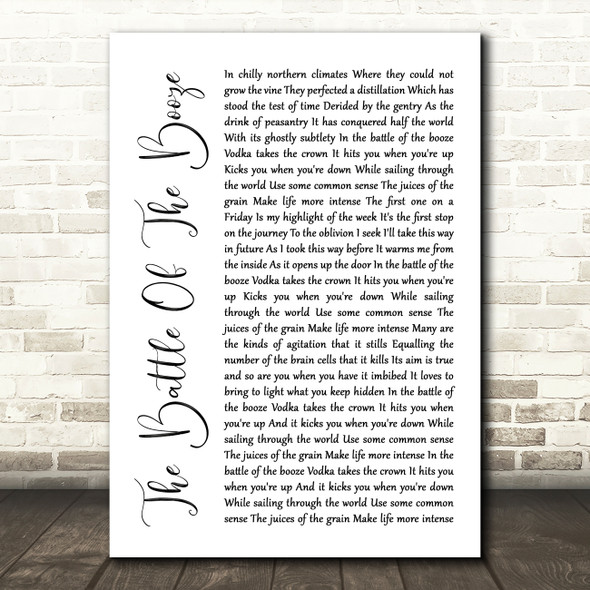 The Battle Of The Booze
In chilly northern climates Where they could not
grow the vine They perfected a distillation Which has
stood the test of time Derided by the gentry As the
drink of peasantry It has conquered half the world
With its ghostly subtlety In the battle of the booze
Vodka takes the crown It hits you when you're up
Kicks you when you're down While sailing through
the world Use some common sense The juices of the
grain Make life more intense The first one on a
Friday Is my highlight of the week It's the first stop
on the journey To the oblivion I seek I'll take this way
in future As I took this way before It warms me from
the inside As it opens up the door In the battle of the
booze Vodka takes the crown It hits you when you're
up Kicks you when you're down While sailing
through the world Use some common sense The
juices of the grain Make life more intense Many are
the kinds of agitation that it stills Equalling the
number of the brain cells that it kills Its aim is true
and so are you when you have it imbibed It loves to
bring to light what you keep hidden In the battle of
the booze Vodka takes the crown It hits you when
you're up And it kicks you when you're down While
sailing through the world Use some common sense
The juices of the grain Make life more intense In the
battle of the booze Vodka takes the crown It hits you
when you're up And it kicks you when you're down
While sailing through the world Use some common
sense The juices of the grain Make life more intense